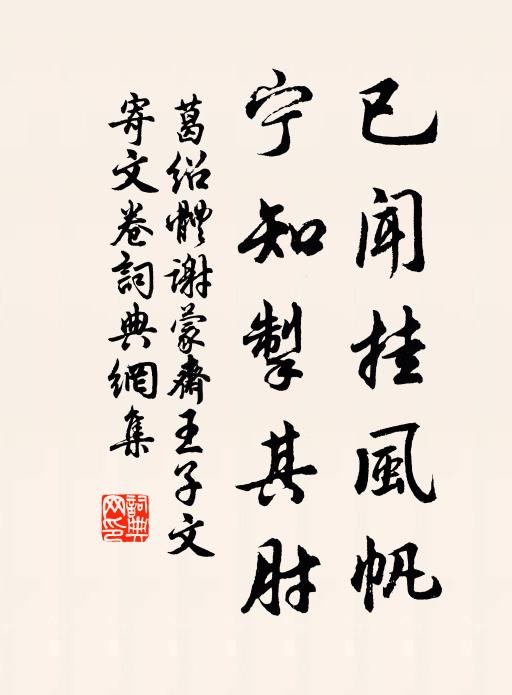 已闻挂風帆
宁知掣其肘
葛绍體谢蒙齋王子文
寄文卷詞典網集
詞典
网印